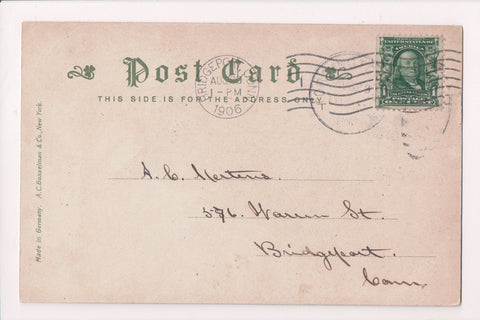 Post Card
THIS SIDE IS FOR THE ADDRESS ONLY
BRIDGEPORT, CONN
AUG
1-PM
1906
A. C. Bosselman & Co., New York.
Made in Germany
A. C.
576. Warren St.
Bridgeport.
Conn